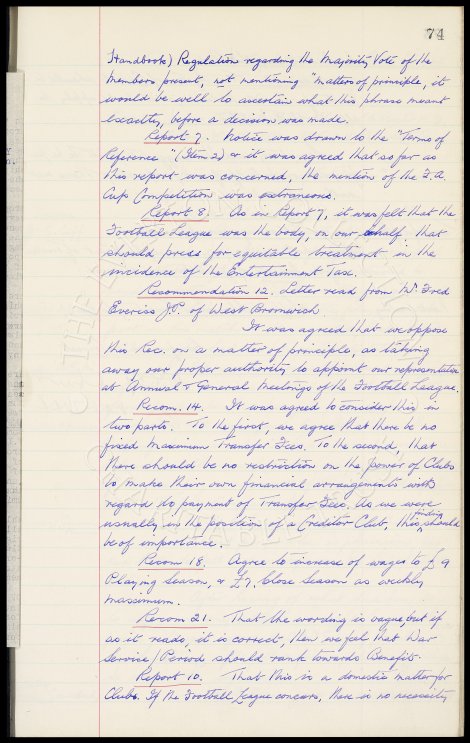 74
Handbook) Regulation regarding the Majority Vote of the
members present, not mentioning "matters of principle, it
would be well to ascertain what this phrase meant
exactly, before a decision was made.
Report 7. Notice was drawn to the "Terms of
Reference" (Item 2) & it was agreed that so far as
this report was concerned, the mention of the F.A.
Cup Competition was extraneous.
Report 8. As in Report 7, it was felt that the
Football League was the body, on our behalf, that
should press for equitable treatment in the
incidence of the Entertainment Tax.
Recommendation 12. Letter read from Mr Fred
Everiss J.P. of West Bromwich.
It was agreed that we oppose
this Rec. on a matter of principle, as taking
away our proper authority to appoint our representative
at Annual & General Meetings of the Football League.
Recom. 14. It was agreed to consider this in
two parts. To the first, we agree that there be no
fixed Maximum Transfer Fees. To the second, that
there should be no restriction on the power of Clubs
to make their own financial arrangements with
regard to payment of Transfer Fees. As we were
usually in the position of a Creditor Club, this finding should
be of importance.
Recom 18. Agree to increase of wages to £9
Playing Season, & £7. Close Season as weekly
maximum.
Recom 21. That the wording is vague, but if
as it reads, it is correct, then we feel that War
Service/Period should rank towards Benefit.
Report 10. That this is a domestic matter for
Clubs. If the Football League concurs, there is no necessity